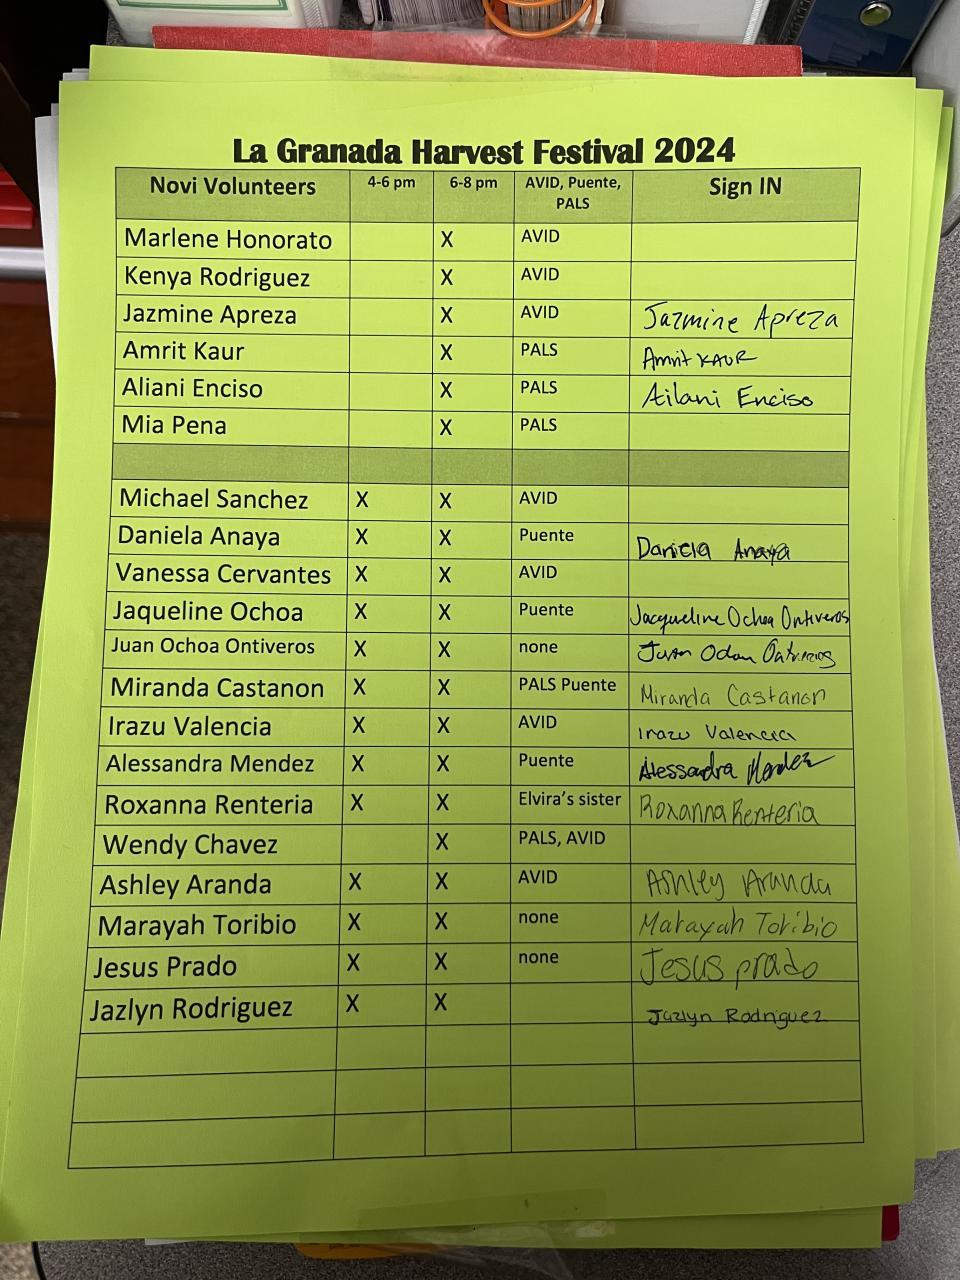 La Granada Harvest Festival 2024
Novi Volunteers 4-6 pm 6-8 pm AVID, Puente, PALS Sign IN
Marlene Honorato X AVID
Kenya Rodriguez X AVID
Jazmine Apreza X AVID Jazmine Apreza
Amrit Kaur X PALS Amrit KAUR
Aliani Enciso X PALS Ailani Enciso
Mia Pena X PALS
Michael Sanchez X X AVID
Daniela Anaya X X Puente Daniela Anaya
Vanessa Cervantes X X AVID
Jaqueline Ochoa X X Puente Jacqueline Ochoa Ontiveros
Juan Ochoa Ontiveros X X none Juan
Miranda Castanon X X PALS Puente Miranda Castanon
Irazu Valencia X X AVID Irazu Valencia
Alessandra Mendez X X Puente Alessandra Mendez
Roxanna Renteria X X Elvira's sister Roxanna Renteria
Wendy Chavez X PALS, AVID
Ashley Aranda X X AVID Ashley Aranda
Marayah Toribio X X none Marayah Toribio
Jesus Prado X X none Jesus prado
Jazlyn Rodriguez X X Jazlyn Rodriguez